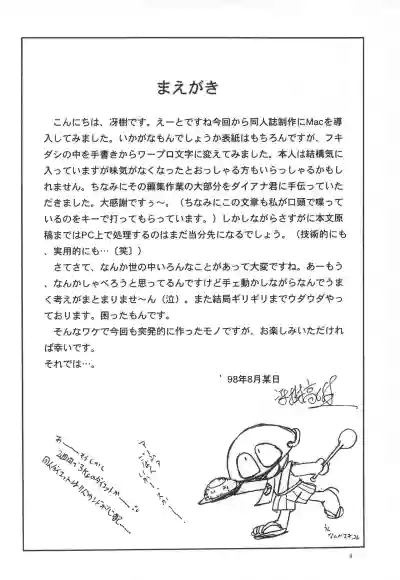 まえがき
こんにちは、冴樹です。えーとですね今回から同人誌制作にMacを導
入してみました。いかがなもんでしょうか表紙はもちろんですが、フキ
ダシの中を手書きからワープロ文字に変えてみました。本人は結構気に
入っていますが味気がなくなったとおっしゃる方もいらっしゃるかもし
れません。ちなみにその編集作業の大部分をダイアナ君に手伝っていた
だきました。大感謝ですぅ〜。(ちなみにこの文章も私が口頭で喋って
いるのをキーで打ってもらっています。)しかしながらさすがに本文原
稿まではPC上で処理するのはまだ当分先になるでしょう。(技術的にも
、実用的にも…〔笑〕)
さてさて、なんか世の中いろんなことがあって大変ですね。あーもう
、なんかしゃべろうと思ってるんですけど手ェ動かしながらなんでうま
く考えがまとまりませ〜ん(泣)。また結局ギリギリまでウダウダやっ
ております。困ったもんです。
そんなワケで今回も突発的に作ったモノですが、お楽しみいただけれ
ば幸いです。
それでは…。
'98年8月某日